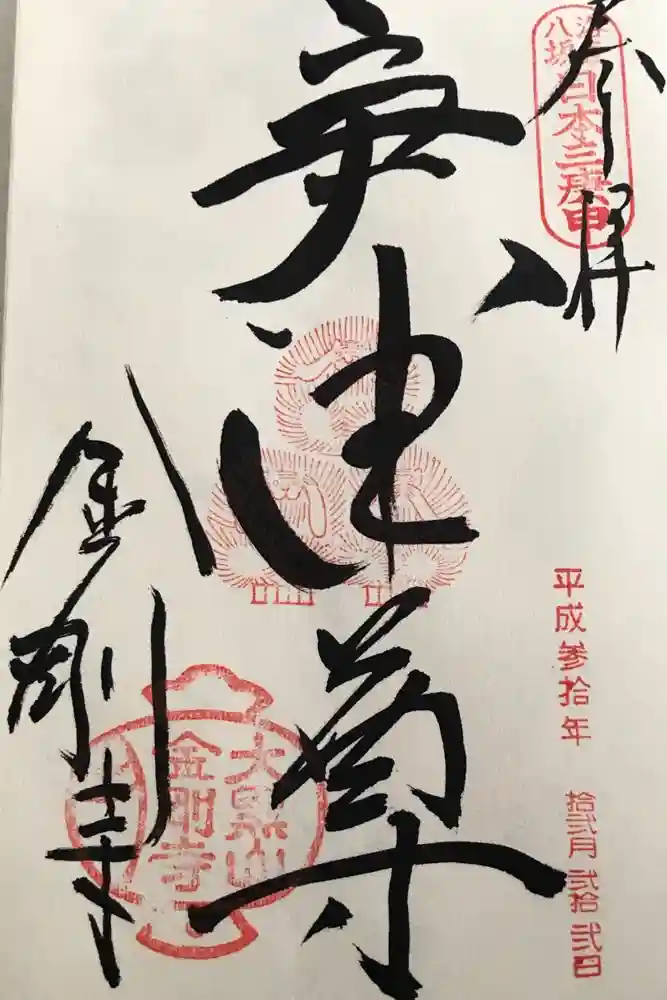 奉拝
八坂
日本三庚申
庚申尊
平成参拾年
拾弐月弐拾弐日
金剛寺
大黒山
金剛寺